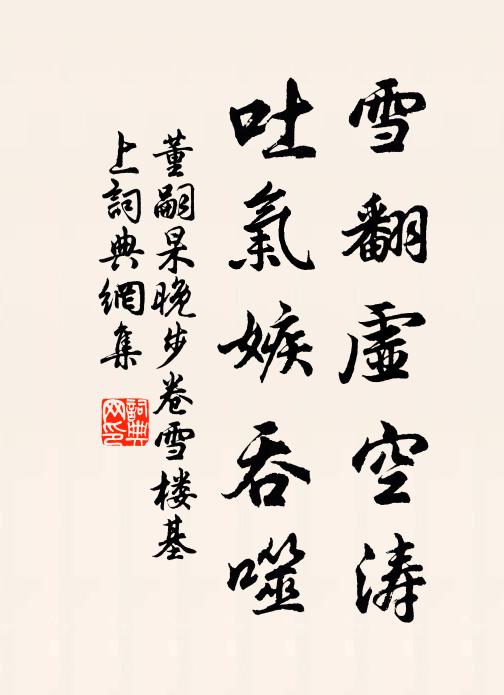 雪翻虛空濤
吐氣嫉吞噬
董嗣杲晚步卷雪楼基
上詞典網集
詞典
网印